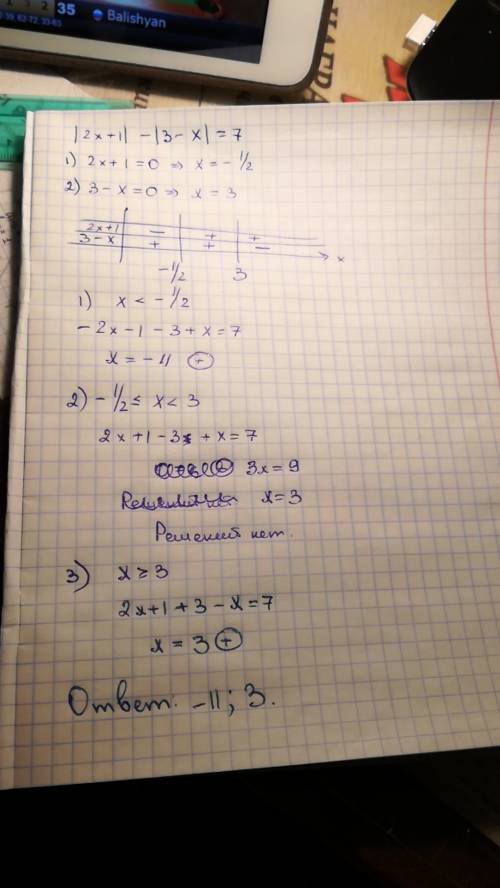 35
Balishyan
|2x+1| - |3-x| = 7
1) 2x+1=0 ⇒ x = -1/2
2) 3-x=0 ⇒ x = 3
2x+1 - + +
3-x + + -
-1/2 3 x
1) x < -1/2
-2x-1-3+x=7
x = -11 +
2) -1/2 ≤ x < 3
2x+1-3+x=7
3x=9
x=3
Решений нет.
3) x ≥ 3
2x+1+3-x=7
x = 3 +
Ответ: -11; 3.